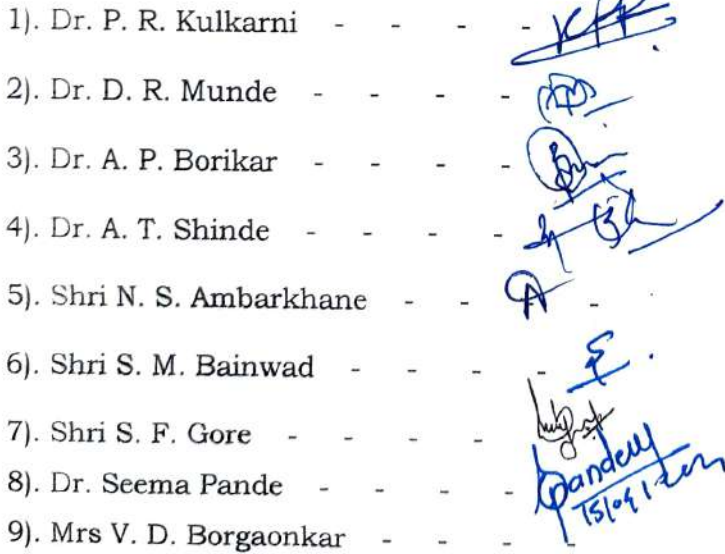 1). Dr. P. R. Kulkarni - - - -
2). Dr. D. R. Munde - - - -
3). Dr. A. P. Borikar - - - -
4). Dr. A. T. Shinde - - - -
5). Shri N. S. Ambarkhane - - -
6). Shri S. M. Bainwad - - - -
7). Shri S. F. Gore - - - -
8). Dr. Seema Pande - - - -
9). Mrs V. D. Borgaonkar - - - -